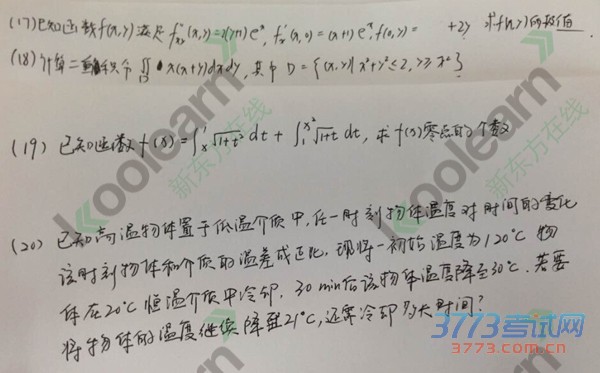 (17) 已知函数f(x,y)满足 f''xy(x,y)=2(y+1)e^x, f'x(x,0)=(x+1)e^x, f(0,y)= +2y 求f(x,y)的极值.
(18) 计算二重积分 ∬D x(x+y)dxdy, 其中 D={(x,y)|x²+y²≤2, y≥x²}
(19) 已知函数 f(x)=∫x^1 √(1+t²) dt + ∫1^(x²) √(1+t) dt, 求 f(x)零点的个数
(20) 已知高温物体置于低温介质中, 任一时刻物体温度对时间的变化
该时刻物体和介质的温差成正比, 现将一初始温度为120℃ 物
体在20℃ 恒温介质中冷却, 30 min后该物体温度降至30℃. 若要
将物体的温度继续降至21℃, 还需冷却多长时间?
koolearn
新东方在线
koolearn
新东方在线
3773考试网
3773.com.cn